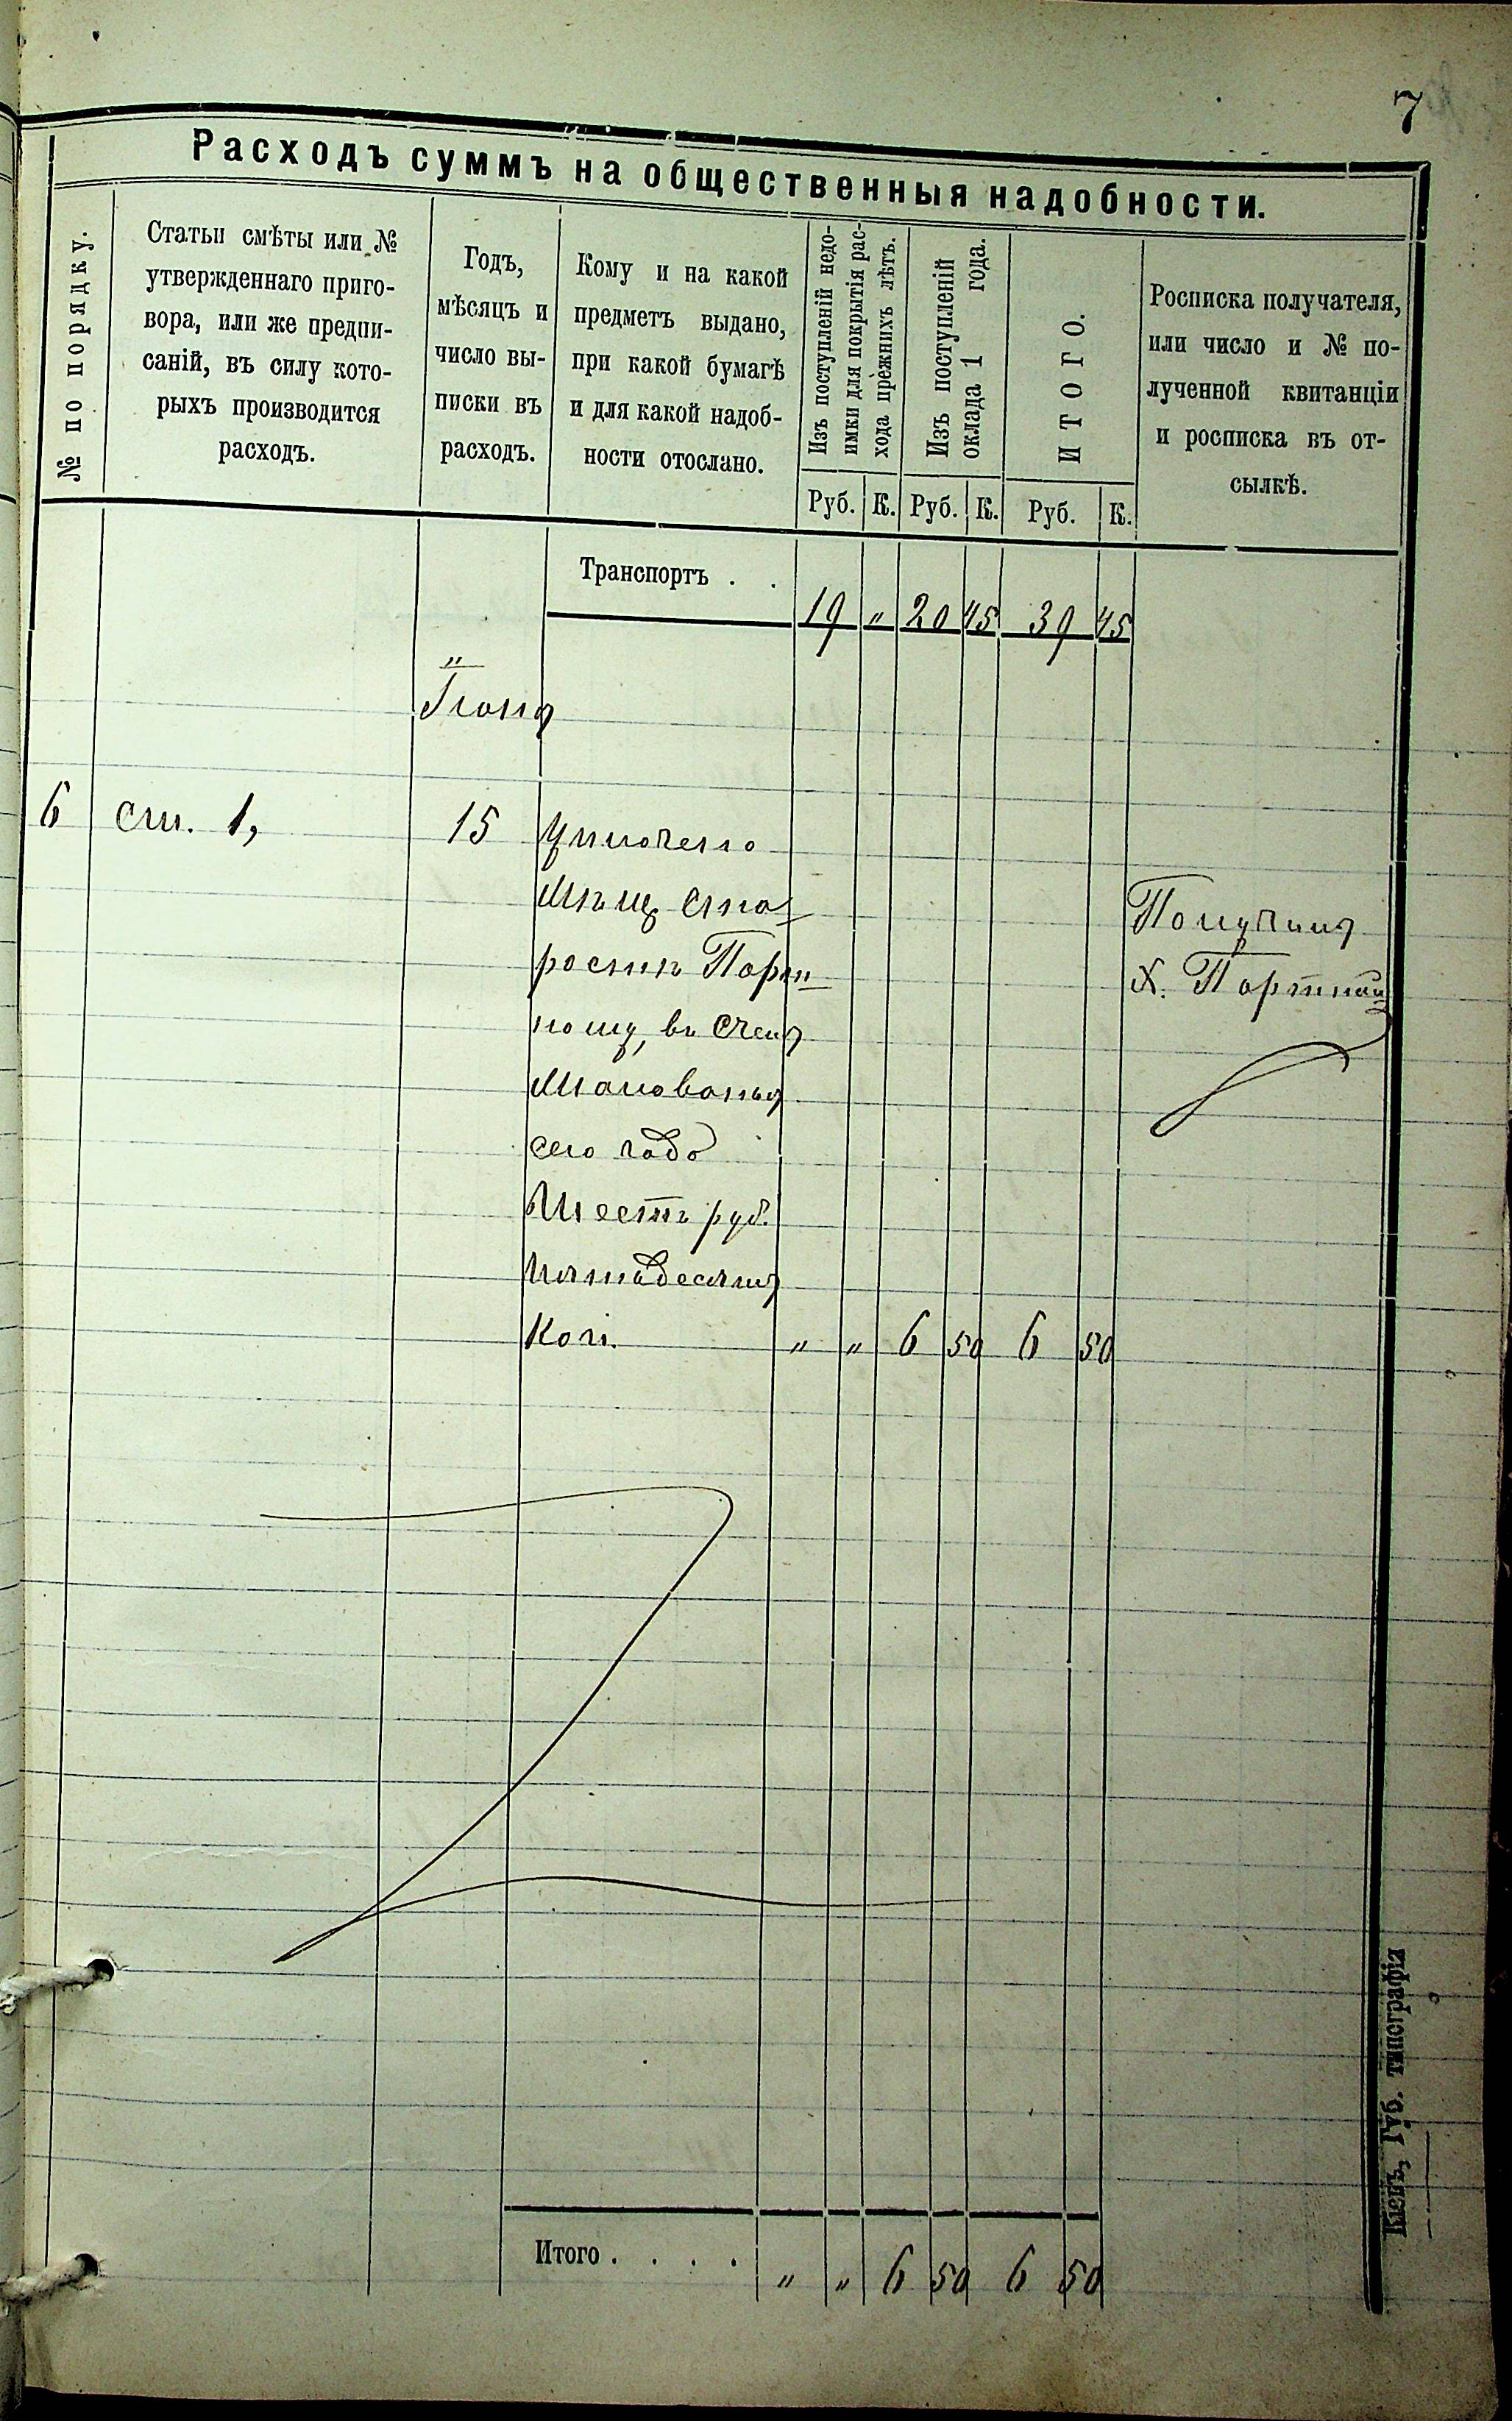 7
Расходъ суммъ на общественныя надобности.
№ по порядку.
Статьи смѣты или №
утвержденнаго приго-
вора, или же предпи-
саній, въ силу кото-
рыхъ производится
расходъ.
Годъ,
мѣсяцъ и
число вы-
писки въ
расходъ.
Кому и на какой
предметъ выдано,
при какой бумагѣ
и для какой надоб-
ности отослано.
Изъ поступленій недо-
имки для покрытія рас-
хода прежнихъ лѣтъ.
Изъ поступленій
оклада 1 года.
ИТОГО.
Росписка получателя,
или число и № по-
лученной квитанціи
и росписка въ от-
сылкѣ.
Руб. К. Руб. К. Руб. К.
Транспортъ . . 19 " 20 45 39 45
"
Іюня
6 ст. 1, 15 Уплочено
Мѣщ. ста-
ростѣ Порт-
ному, въ счетъ
Жалованья
сего года
Шесть руб.
пятьдесятъ
коп. " " 6 50 6 50
Получилъ
Х. Портной
Итого . . . . " " 6 50 6 50
Кіевъ, Губ. типографія